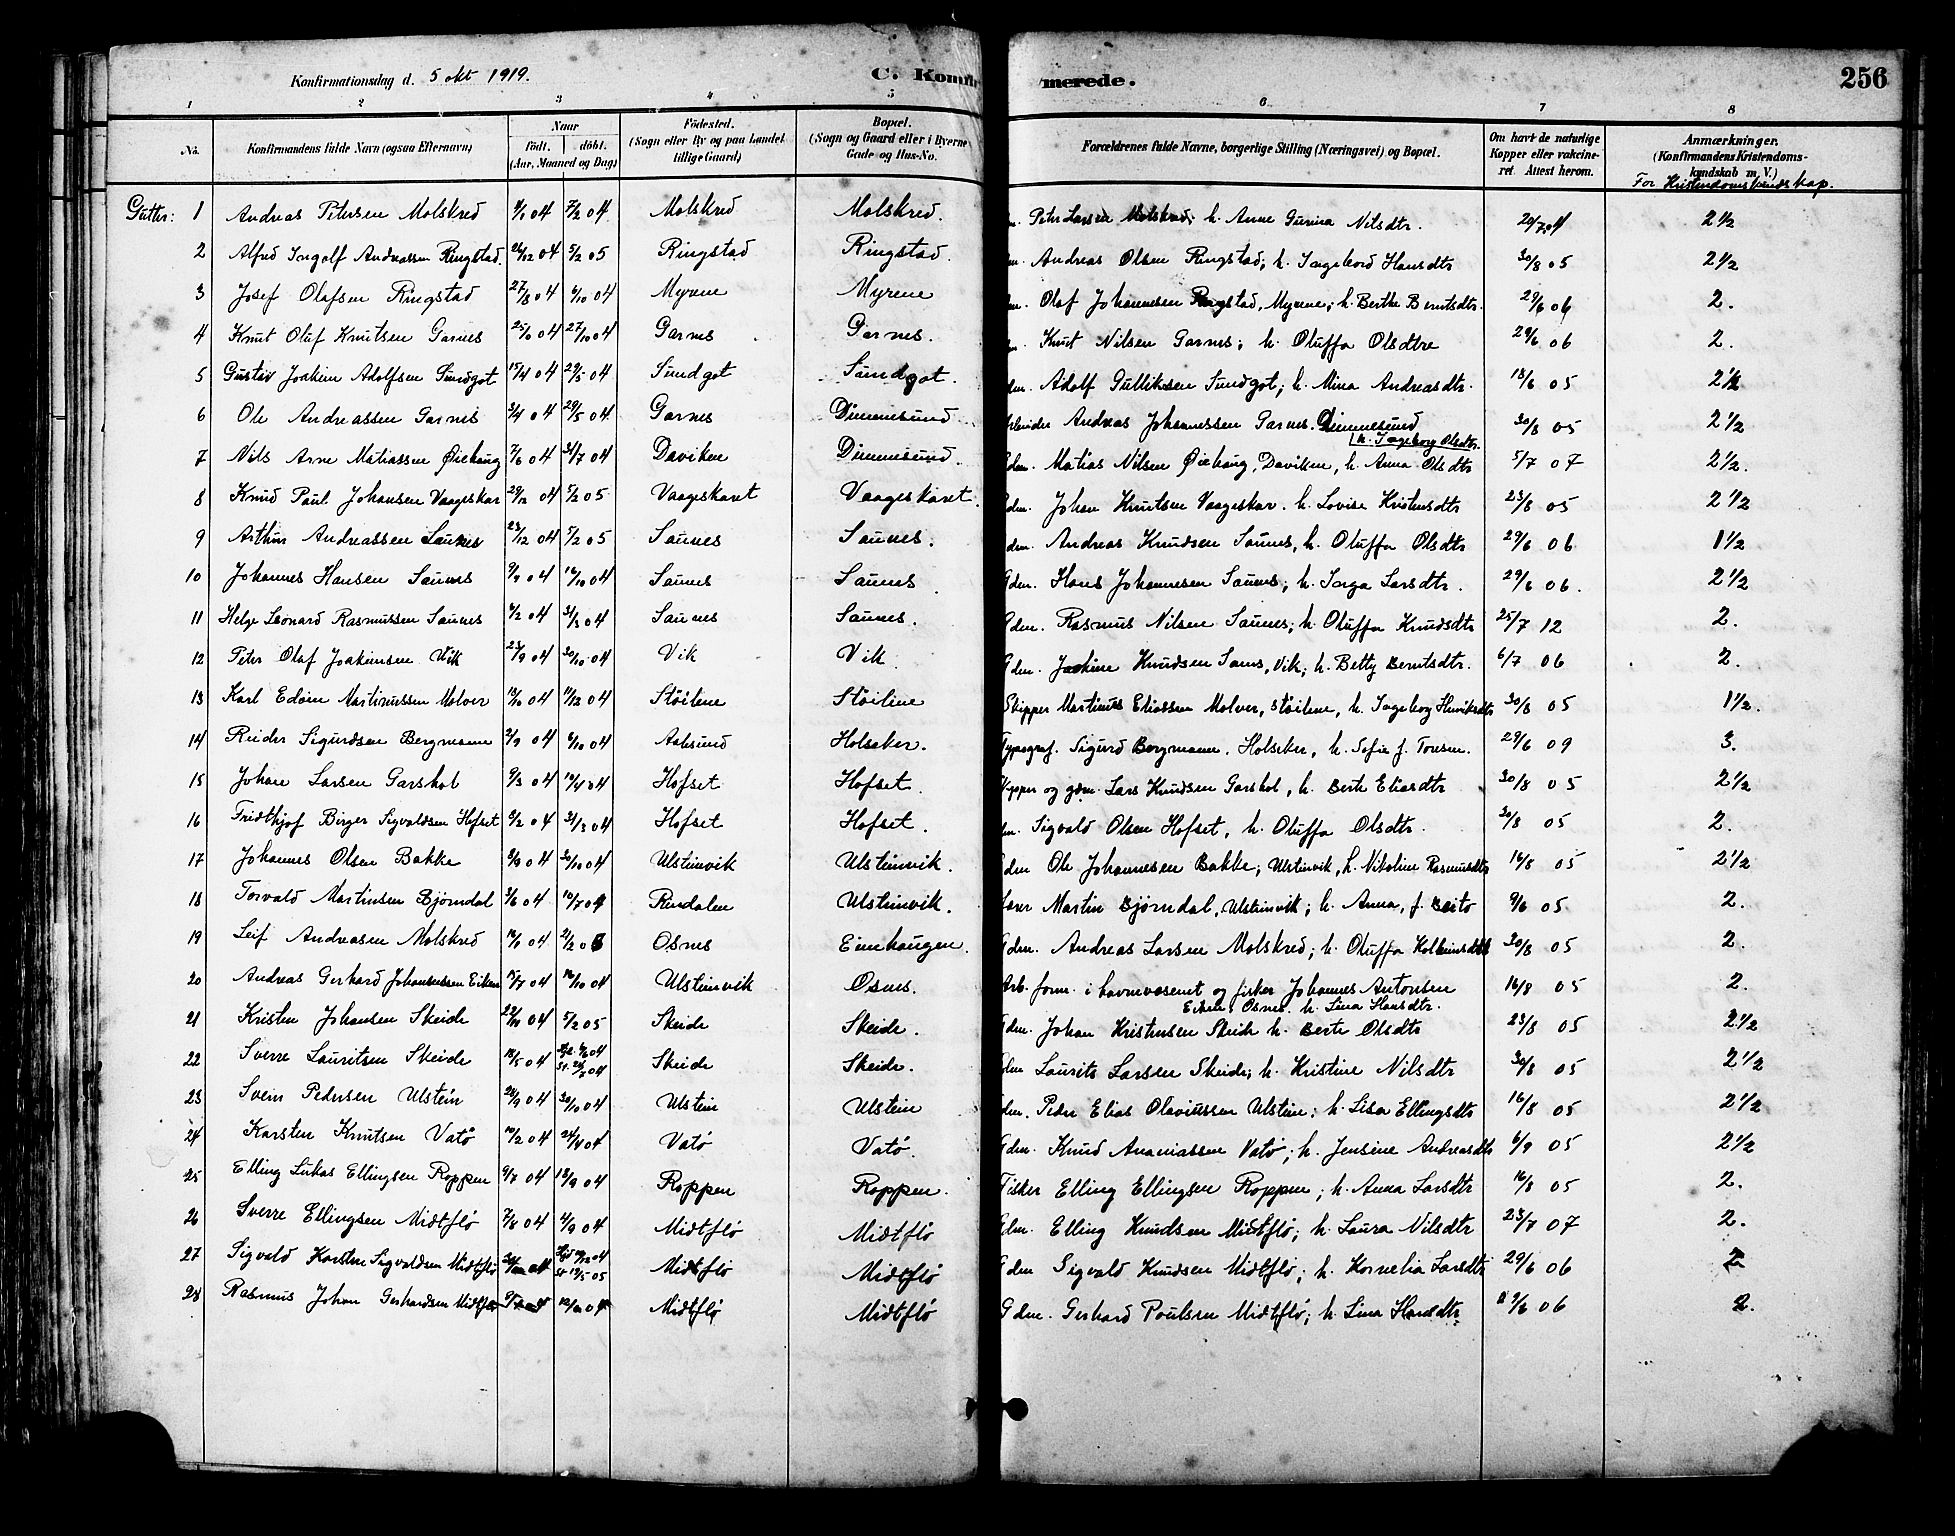 Konfirmationsdag d. 5 okt 1919.
C. Konfirmerede.
256
1 2 3 4 5 6 7 8
No.
Konfirmandens fulde Navn (ogsaa Efternavn)
Naar
født. døbt.
(Aar, Maaned og Dag)
Fødested.
(Sogn eller By og paa Landet
tillige Gaard)
Bopæl.
(Sogn og Gaard eller i Byerne
Gade og Hus-No.
Forældrenes fulde Navne, borgerlige Stilling (Næringsvei) og Bopæl.
Om havt de naturlige
Kopper eller vakcine-
ret. Attest herom.
Anmærkninger.
(Konfirmandens Kristendoms-
kundskab m. V.)
For Kristendomskundskap.
Gutter: 1 Andreas Petersen Molskred 04 7/2 04 Molskred Molskred. Peter Larsen Molskred; h. Anne Gurina Nilsdtr. 20/7 04 2 1/2
2 Alfred Ingolf Andreassen Ringstad. 26/12 04 5/2 05 Ringstad Ringstad. Andreas Olsen Ringstad; h. Ingebord Hansdtr 30/8 05 2 1/2
3 Josef Olafsen Ringstad 27/8 04 9/10 04 Myrene Myrene Olaf Johannesen Ringstad, Myrene; h. Berthe Berntsdtr. 29/6 06 2.
4 Knut Oluf Knutsen Garnes 04 27/10 04 Garnes Garnes. Knut Nilsen Garnes; h. Oluffa Olsdtre 29/6 06 2.
5 Gustav Joakim Adolfsen Sundgot 15/4 04 29/5 04 Sundgot Sundgot. Adolf Gulliksen Sundgot; h. Mina Andreasdtr. 18/6 05 2 1/2
6 Ole Andreassen Garnes 3/4 04 29/5 04 Garnes Dimmesund Andreas Johannessen Garnes. Dimmesund 30/8 05 2 1/2
h. Ingeborg Olsdtr.
7 Nils Arne Matiassen Øiehaug 7/6 04 31/7 04 Daviken Dimmesund. Matias Nilsen Øiehaug, Daviken, h. Anna Olsdtr 5/7 07 2 1/2.
8 Knud Paul Johansen Vaageskar 29/12 04 5/2 05 Vaageskaret Vaageskaret. Johan Knutsen Vaageskar. h. Lovise Kristensdtr 23/8 05 2 1/2
9 Arthur Andreassen Saunes 23/12 04 5/2 05 Saunes Saunes. Andreas Knudsen Saunes, h. Oluffa Olsdtr 29/6 06 1 1/2
10 Johannes Hansen Saunes 9/9 04 16/10 04 Saunes Saunes Gdm. Hans Johannesen Saunes; h. Inga Larsdtr. 29/6 06. 2 1/2
11 Helge Leonard Rasmussen Saunes 04 31/3 04 Saunes Saunes. Gdm. Rasmus Nilsen Saunes; h. Oluffa Knudsdtr 25/7 12 2.
12 Peter Olaf Joakimsen Vik 23/9 04 30/10 04 Vik Vik Gdm. Joakim Knudsen Saues, Vik; h. Betty Berntsdtr. 6/7 06 2.
13 Karl Edvin Martinussen Molver 13/10 04 11/12 04 Støilene Støiline Skipper Martinus Eliassen Molver, Støilene, h. Ingeborg Henriksdtr 30/8 05 1 1/2.
14 Reidar Sigurdsen Bergmann 2/9 04 04 Aalesund Holseker. Typograf. Sigurd Bergmann. Holseker, h. Sofie f. Toresen. 29/6 09 3.
15 Johan Larsen Garshol 9/3 04 04 Hofset Hofset. og gdm. Lars Knudsen Garshol, h. Berte Eliasdtr 30/8 05 2 1/2
16 Fridthjof Birger Sigvaldsen Hofset 9/2 04 31/3 04 Hofset Hofset. Sigvald Olsen Hofset, h. Oluffa Olsdtr. 30/8 05 2.
17 Johannes Olsen Bakke 04 30/10 04 Ulsteinvik Ulsteinvik. Ole Johannesen Bakke; Ulsteinvik, h. Nikoline Rasmusdtr 16/8 05 2 1/2
18 Torvald Martinsen Bjørndal 3/6 04 10/7 04 Rindalen Ulsteinvik. Martin Bjørndal, Ulsteinvik; h. Anna, f. Beito 9/6 05 2.
19 Leif Andreasen Molskred 04 Osnes Eimhaugen. Gdm. Andreas Larsen Molskred; h. Oluffa Kolbeinsdtr 30/8 05 2.
20 Andreas Gerhard Johannessen Eiken 15/7 04 16/10 04 Ulsteinvik Osnes. Arb. form. i havnevæsenet og fisker Johannes Antonsen 16/8 05 2.
Osnes. h. Lina Hansdtr.
21 Kristen Johansen Skeide 04 5/2 05 Skeide Skeide. Gdm. Johan Kristensen Skeide h. Berte Olsdtr 23/8 05 2 1/2
22 Sverre Lauritsen Skeide 18/5 04 04 04 Skeide Skeide. Laurits Larsen Skeide; h. Kristine Nilsdtr 30/8 05 2 1/2
23 Svein Pedersen Ulstein 04 30/10 04 Ulstein Ulstein Peder Elias Olaviussen Ulstein; h. Lisa Ellingsdtr 16/8 05 2 1/2
24 Karsten Knutsen Vatø 10/2 04 24/4 04 Vatø Vatø. Gdm. Knud Ananiassen Vatø; h. Jensine Andreasdtr 6/9 05 2 1/2
25 Elling Lukas Ellingsen Roppen 9/7 04 18/9 04 Roppen Roppen. Fisker Elling Ellingsen Roppen; h. Anna Larsdtr 16/8 05 2.
26 Sverre Ellingsen Midtflø 7/8 04 4/9 04 Midtflø Midtflø Gdm. Elling Knudsen Midtflø; h. Laura Nilsdtr 23/7 07 2.
27 Sigvald Karsten Sigvaldsen Midtflø 04 05 Midtflø Midtflø Gdm Sigvald Knudsen Midtflø; h. Kornelia Larsdtr 29/6 06 2
28 Rasmus Johan Gerhardsen Midtflø 04 Midtflø Midtflø Gdm. Gerhard Poulsen Midtflø; h. Lina Hansdtr 06 2.